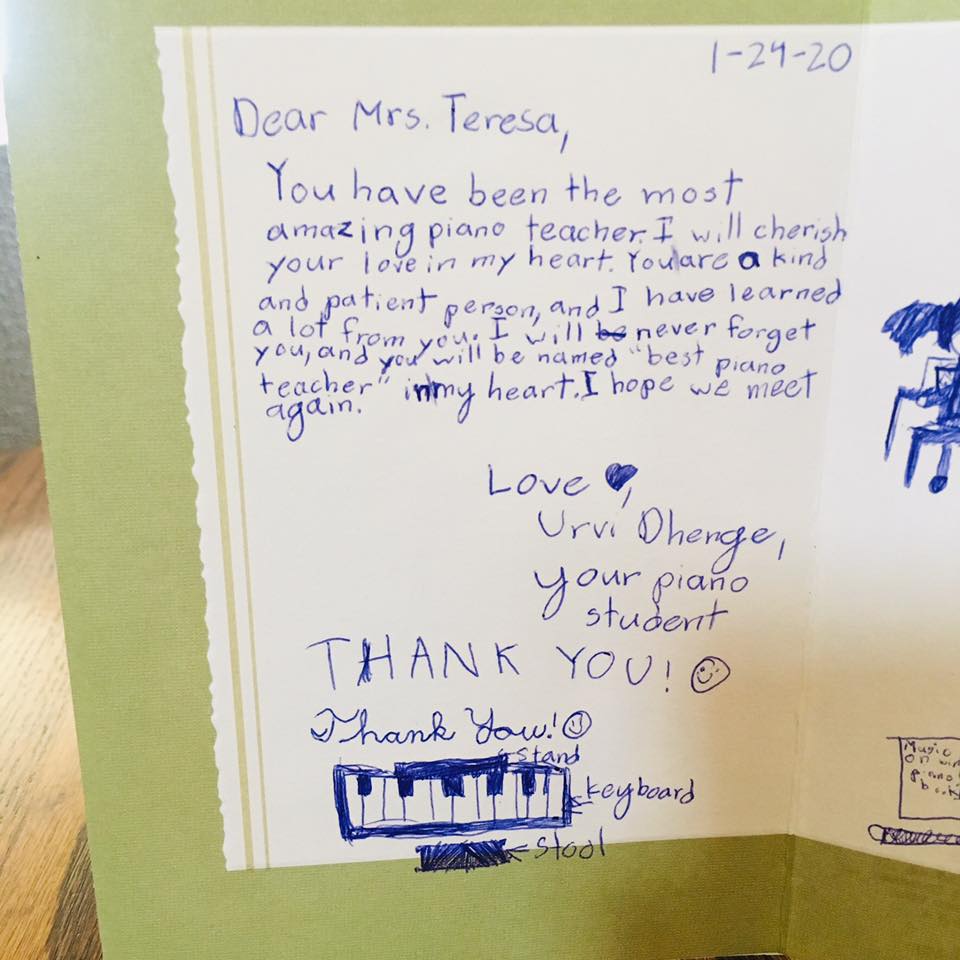 1-24-20
Dear Mrs. Teresa,
You have been the most
amazing piano teacher. I will cherish
your love in my heart. You are a kind
and patient person, and I have learned
a lot from you. I will be never forget
you, and you will be named "best piano
teacher" in my heart. I hope we meet
again.
Love ♥,
Urvi Dhenge,
your piano
student
THANK YOU! ☺
Thank You! ☺
stand
keyboard
stool
Music
on
piano